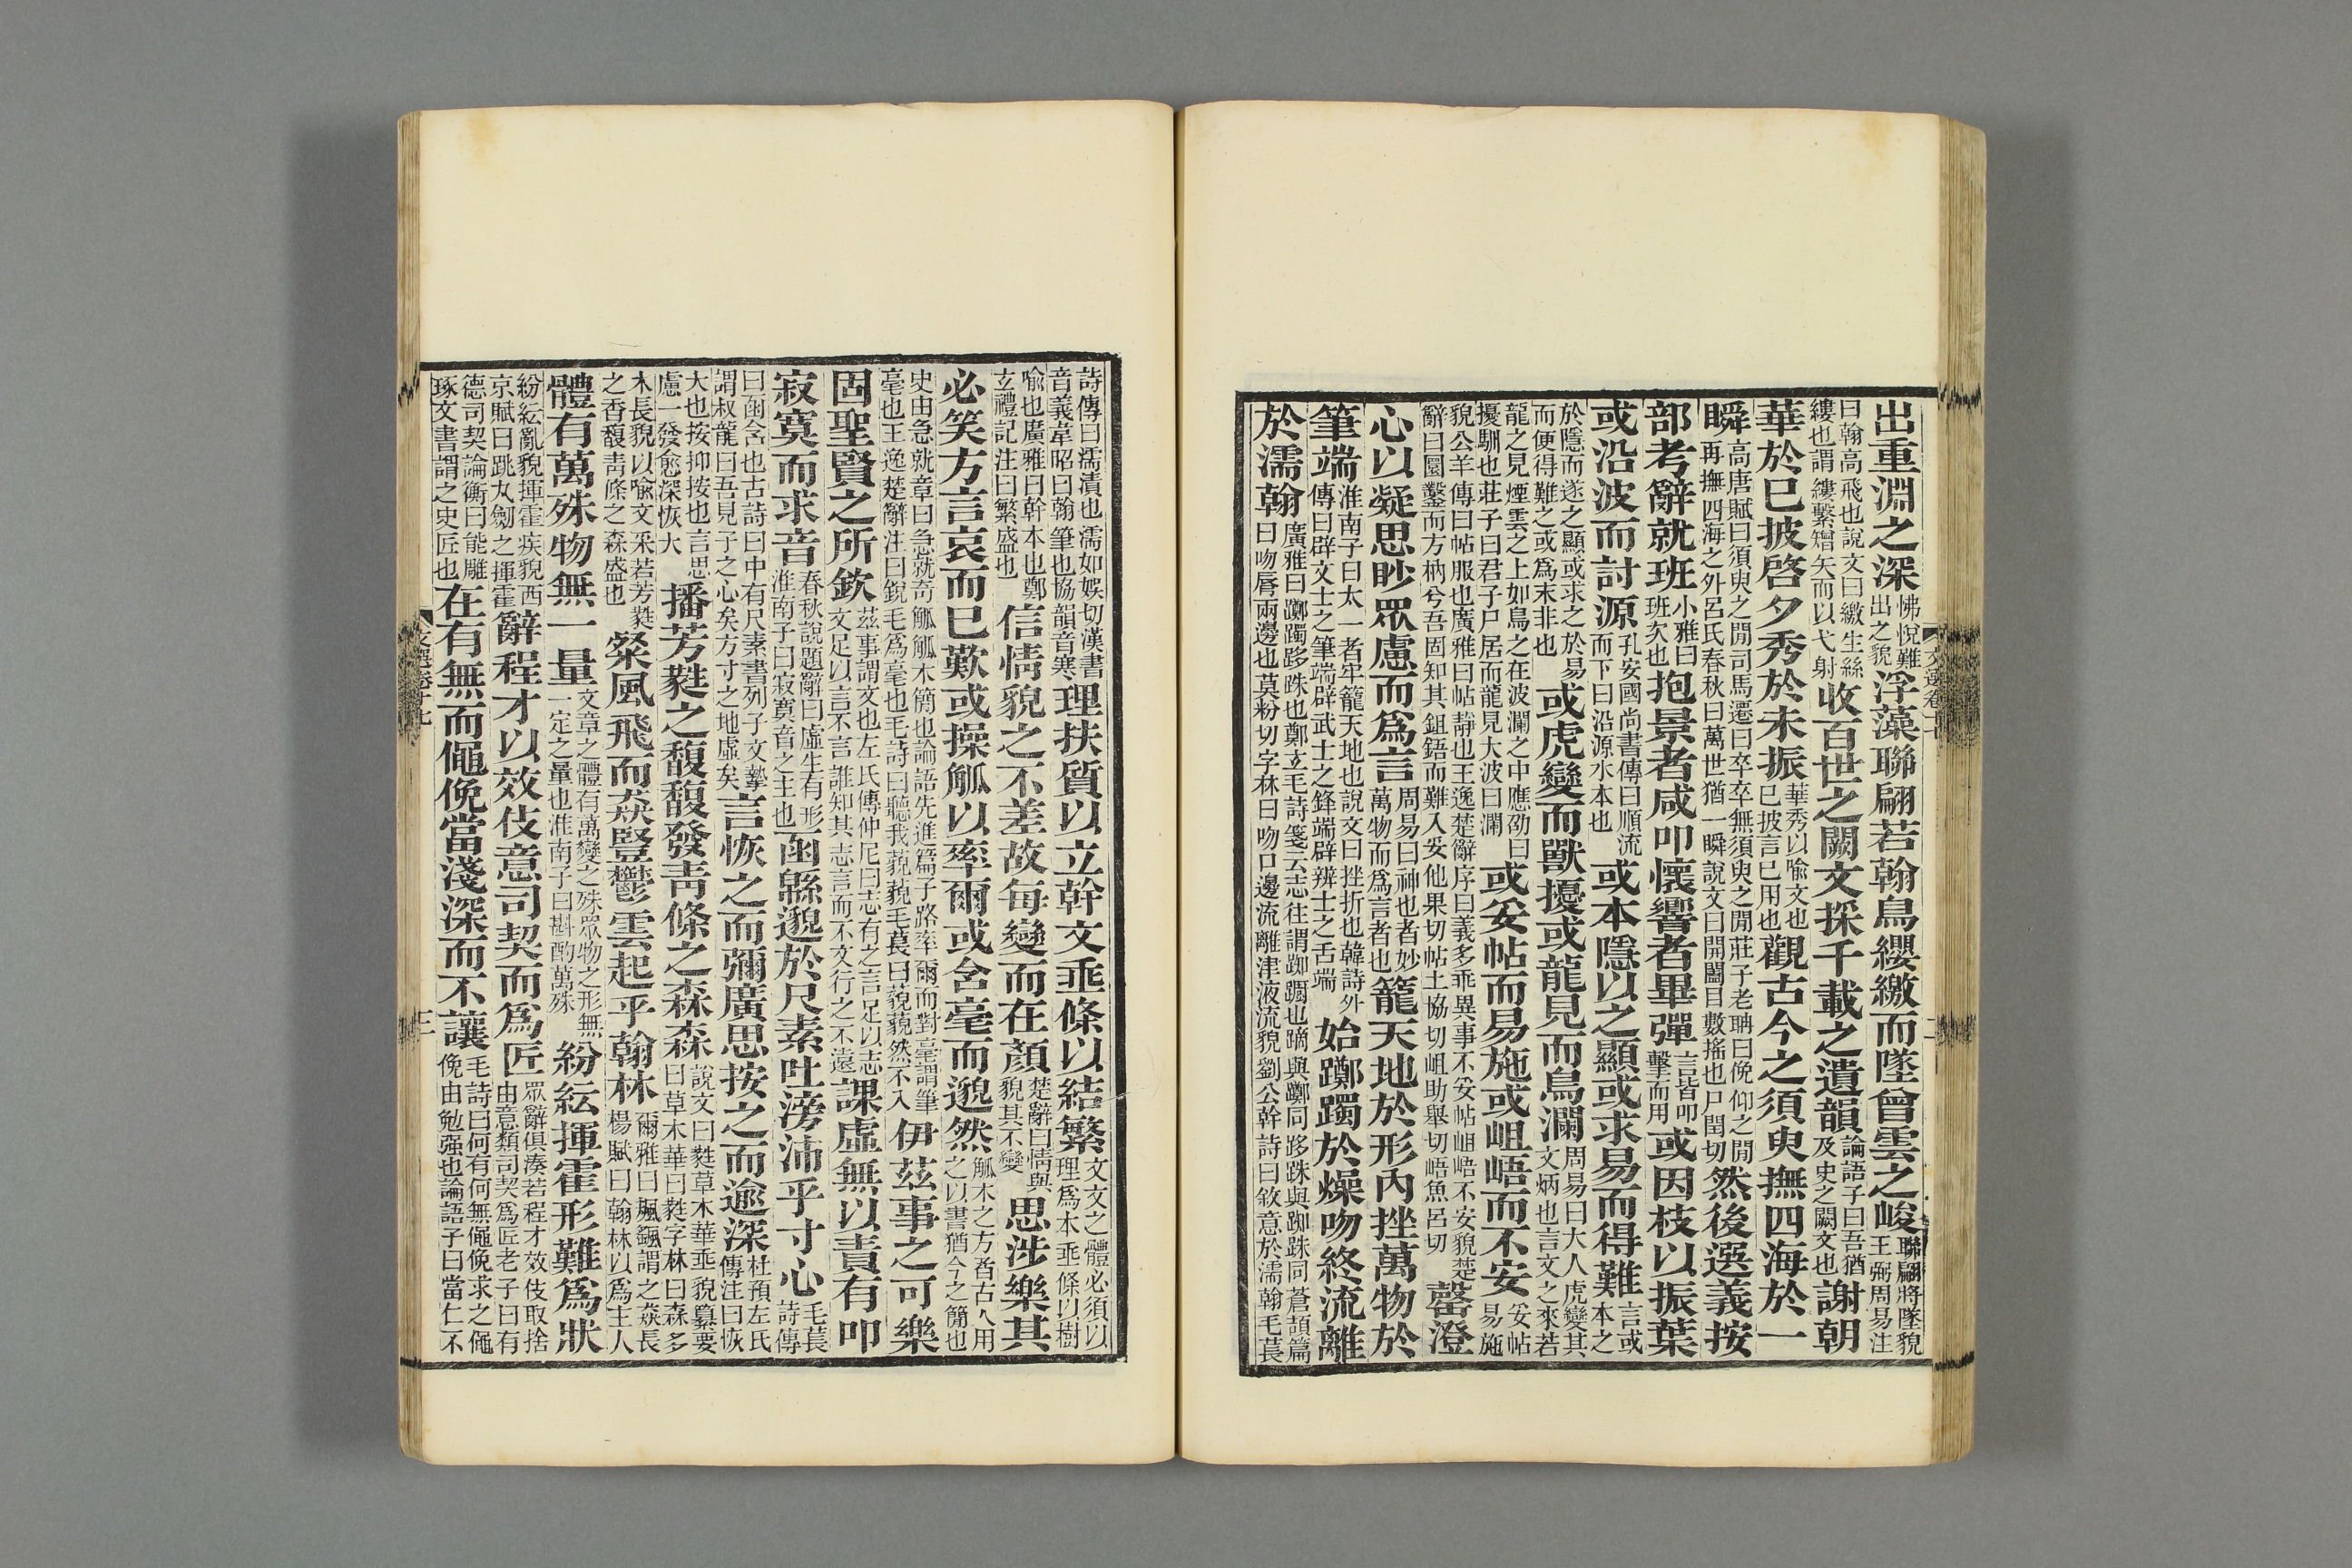 出重淵之深怫悅難出之貌浮藻聯翩若翰鳥纓繳而墜曾雲之峻聯翩將墜貌王弼周易注
曰翰高飛也說文曰繳生絲縷也謂縷繫矰矢而以弋射收百世之闕文採千載之遺韻論語子曰吾猶及史之闕文也謝朝
華於已披啓夕秀於未振華秀以喻文也已披言已用也觀古今之須臾撫四海於一
瞬高唐賦曰須臾之閒司馬遷曰卒卒無須臾之閒莊子老聃曰俛仰之閒再撫四海之外呂氏春秋曰萬世猶一瞬說文曰開闔目數搖也尸閏切然後選義按
部考辭就班小雅曰班次也抱景者咸叩懷響者畢彈言皆叩擊而用或因枝以振葉
或沿波而討源孔安國尚書傳曰順流而下曰沿源水本也或本隱以之顯或求易而得難言或本之
於隱而遂之顯或求之於易而便得難之或爲末非也或虎變而獸擾或龍見而鳥瀾周易曰大人虎變其文炳也言文之來若
龍之見煙雲之上如鳥之在波瀾之中應劭曰擾馴也莊子曰君子尸居而龍見大波曰瀾或妥帖而易施或岨峿而不安妥帖易施
貌公羊傳曰帖服也廣雅曰帖靜也王逸楚辭序曰義多乖異事不妥帖岨峿不安貌楚辭曰圜鑿而方枘兮吾固知其鉏鋙而難入妥他果切帖土協切岨助舉切峿魚呂切罄澄
心以凝思眇眾慮而爲言周易曰神也者妙萬物而爲言者也籠天地於形內挫萬物於
筆端淮南子曰太一者牢籠天地也說文曰挫折也韓詩外傳曰辟文士之筆端辟武士之鋒端辟辨士之舌端始躑躅於燥吻終流離
於濡翰廣雅曰躑躅跢跦也鄭玄毛詩箋云志往謂踟躕也蹢與躑同跢跦與踟跦同蒼頡篇曰吻脣兩邊也莫粉切字林曰吻口邊流離津液流貌劉公幹詩曰敘意於濡翰毛萇
詩傳曰濡漬也濡如娛切漢書音義韋昭曰翰筆也協韻音寒理扶質以立幹文垂條以結繁文文之體必須以理爲本垂條以樹
喻也廣雅曰幹本也鄭玄禮記注曰繁盛也信情貌之不差故每變而在顏楚辭曰情與貌其不變思涉樂其
必笑方言哀而已歎或操觚以率爾或含毫而邈然觚木之方者古人用之以書猶今之簡也
史由急就章曰急就奇觚觚木簡也論語先進篇子路率爾而對毫謂筆毫也王逸楚辭注曰銳毛爲毫也毛詩曰聽我藐藐毛萇曰藐藐然不入伊茲事之可樂
固聖賢之所欽茲事謂文也左氏傳仲尼曰志有之言足以志文足以言不言誰知其志言而不文行之不遠課虛無以責有叩
寂寞而求音春秋說題辭曰虛生有形淮南子曰寂寞音之主也函緜邈於尺素吐滂沛乎寸心毛萇詩傳
曰函含也古詩曰中有尺素書列子文摯謂叔龍曰吾見子之心矣方寸之地虛矣言恢之而彌廣思按之而逾深杜預左氏傳注曰恢
大也按抑按也言思慮一發愈深恢大播芳蕤之馥馥發靑條之森森說文曰蕤草木華垂貌纂要曰草木華曰蕤字林曰森多
木長貌以喻文采若芳蕤之香馥靑條之森盛也粲風飛而猋豎鬱雲起乎翰林爾雅曰颿颻謂之猋長楊賦曰翰林以爲主人
體有萬殊物無一量文章之體有萬變之殊眾物之形無一定之量也淮南子曰斟酌萬殊紛紜揮霍形難爲狀
紛紜亂貌揮霍疾貌西京賦曰跳丸劒之揮霍辭程才以效伎意司契而爲匠眾辭俱湊若程才效伎取捨由意類司契爲匠老子曰有
德司契論衡曰能雕琢文書謂之史匠也在有無而僶俛當淺深而不讓毛詩曰何有何無僶俛求之僶俛由勉强也論語子曰當仁不